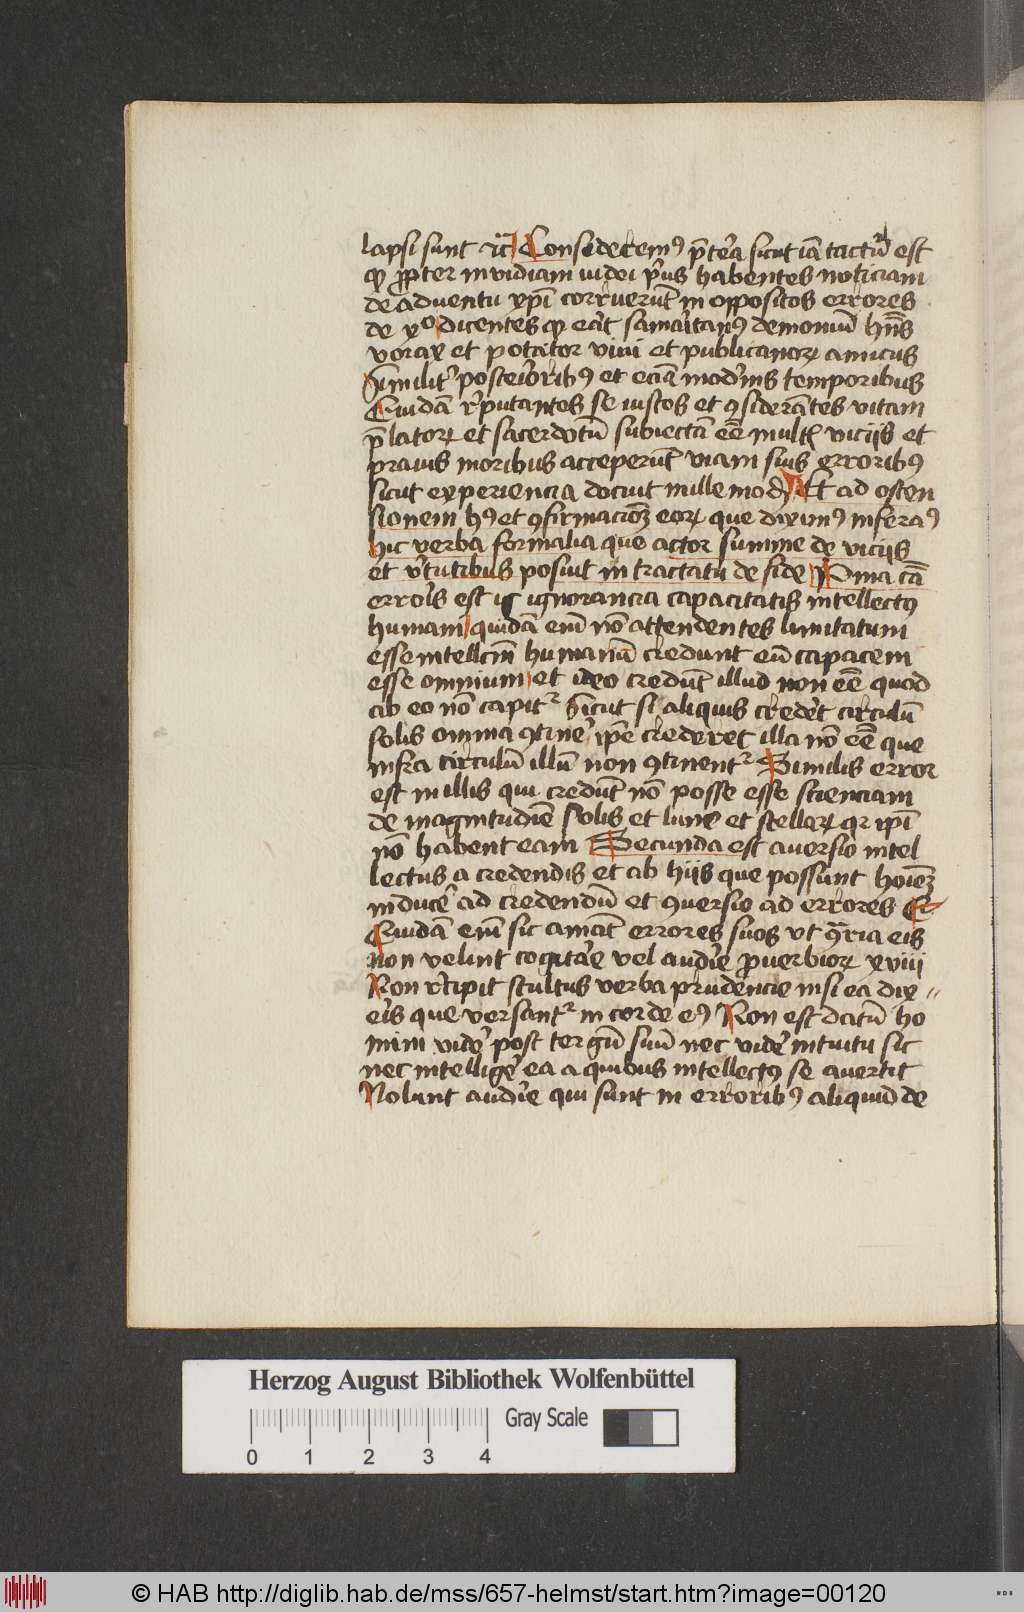 lapsi sunt ⁊c̃ Considerem9 p̃te͛a sicut iã tactũ est
ꝙ ꝓpter invidiam iudei p͛us habentes noticiam
de adventu xp̃i corruerũt in oppositos errores
de xo dicentes ꝙ eẽt samaritan9 demoniũ hñs
vorax et potator vini et publicanoꝝ amicus
Similit͛ posteriorib9 et eciã mod͛nis temporibus
Quidã r͛putantes se iustos et ꝯsiderãtes vitam
p̃latoꝝ et sacerdotũ subiectã eẽ mult viciis et
pravis moribus acceperũt viam suis errorib9
sicut experiencia docuit mille mod Et ad osten
sionem h9 et ꝯfirmacionẽ eoꝝ que dixim9 infera9
hic verba formalia que actor summe de viciis
et v͛tutibus posuit in tractatu de fide P͛ma cã
erroris est ignorancia capacitatis intellect9
humani quidã em̃ nõ attendentes limitatum
esse intellcm̃ humanũ credunt eũ capacem
esse omnium et ideo credũt illud non eẽ quod
ab eo nõ capit͛ Sicut si aliquis crederet circulũ
solis omnia ꝯtine͛ ip̃e crederet illa nõ eẽ que
infra circulũ illũ non ꝯtinent͛ Similis error
est in illis qui credũt nõ posse esse scienciam
de magnitudĩe solis et lune et stellaꝝ qr ip̃i
nõ habent eam Secunda est aversio intel
lectus a credendis et ab hiis que possunt hoiẽs
induce͛ ad credendũ et ꝯversio ad errores Et
Quidã em̃ sic amãt errores suos vt ꝯ̃ria eis
non velint cogita͛e vel audi͛e proverbioꝝ xviii
Non r͛cipit stultus verba prudencie nisi ea dix
eris que versant͛ in corde e9 Non est datũ ho
mini vide͛ post tergũ suũ nec vide͛ intuitu sic
nec intellige͛ ea a quibus intellect9 se avertit
Nolunt audi͛e qui sunt in errorib9 aliquid de
Herzog August Bibliothek Wolfenbüttel
Gray Scale
0 1 2 3 4
© HAB http://diglib.hab.de/mss/657-helmst/start.htm?image=00120